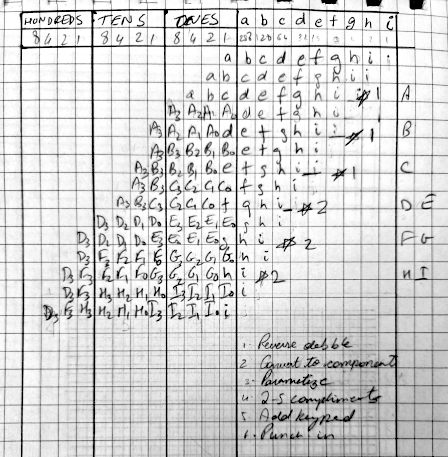 HUNDREDS TENS ONES a b c d e f g h i i
8 4 2 1 8 4 2 1 8 4 2 1 256 128 64
a b c d e f g h i i
a b c d e f g h i i
a b c d e f g h i 1 A
A3 A2 A1 A0 d e f g h i
A3 A2 A1 A0 d e f g h i i 1 B
A3 B3 B2 B1 B0 e f g h i
A3 B3 B2 B1 B0 e f g h i i 1 C
A3 B3 C3 C2 C1 C0 f g h i
A3 B3 C3 C2 C1 C0 f g h i 2 D E
D3 D2 D1 D0 E3 E2 E1 E0 g h i
D3 D2 D1 D0 E3 E2 E1 E0 g h i 2 F G
D3 F3 F2 F1 F0 G3 G2 G1 G0 h i
D3 F3 F2 F1 F0 G3 G2 G1 G0 h i 2 H I
D3 F3 H3 H2 H1 H0 I3 I2 I1 I0 i
D3 F3 H3 H2 H1 H0 I3 I2 I1 I0 i
1. Reverse dabble
2 Convert to component
3. Parametize
4 2-s compliments
5 Add keypad
6. Punch in